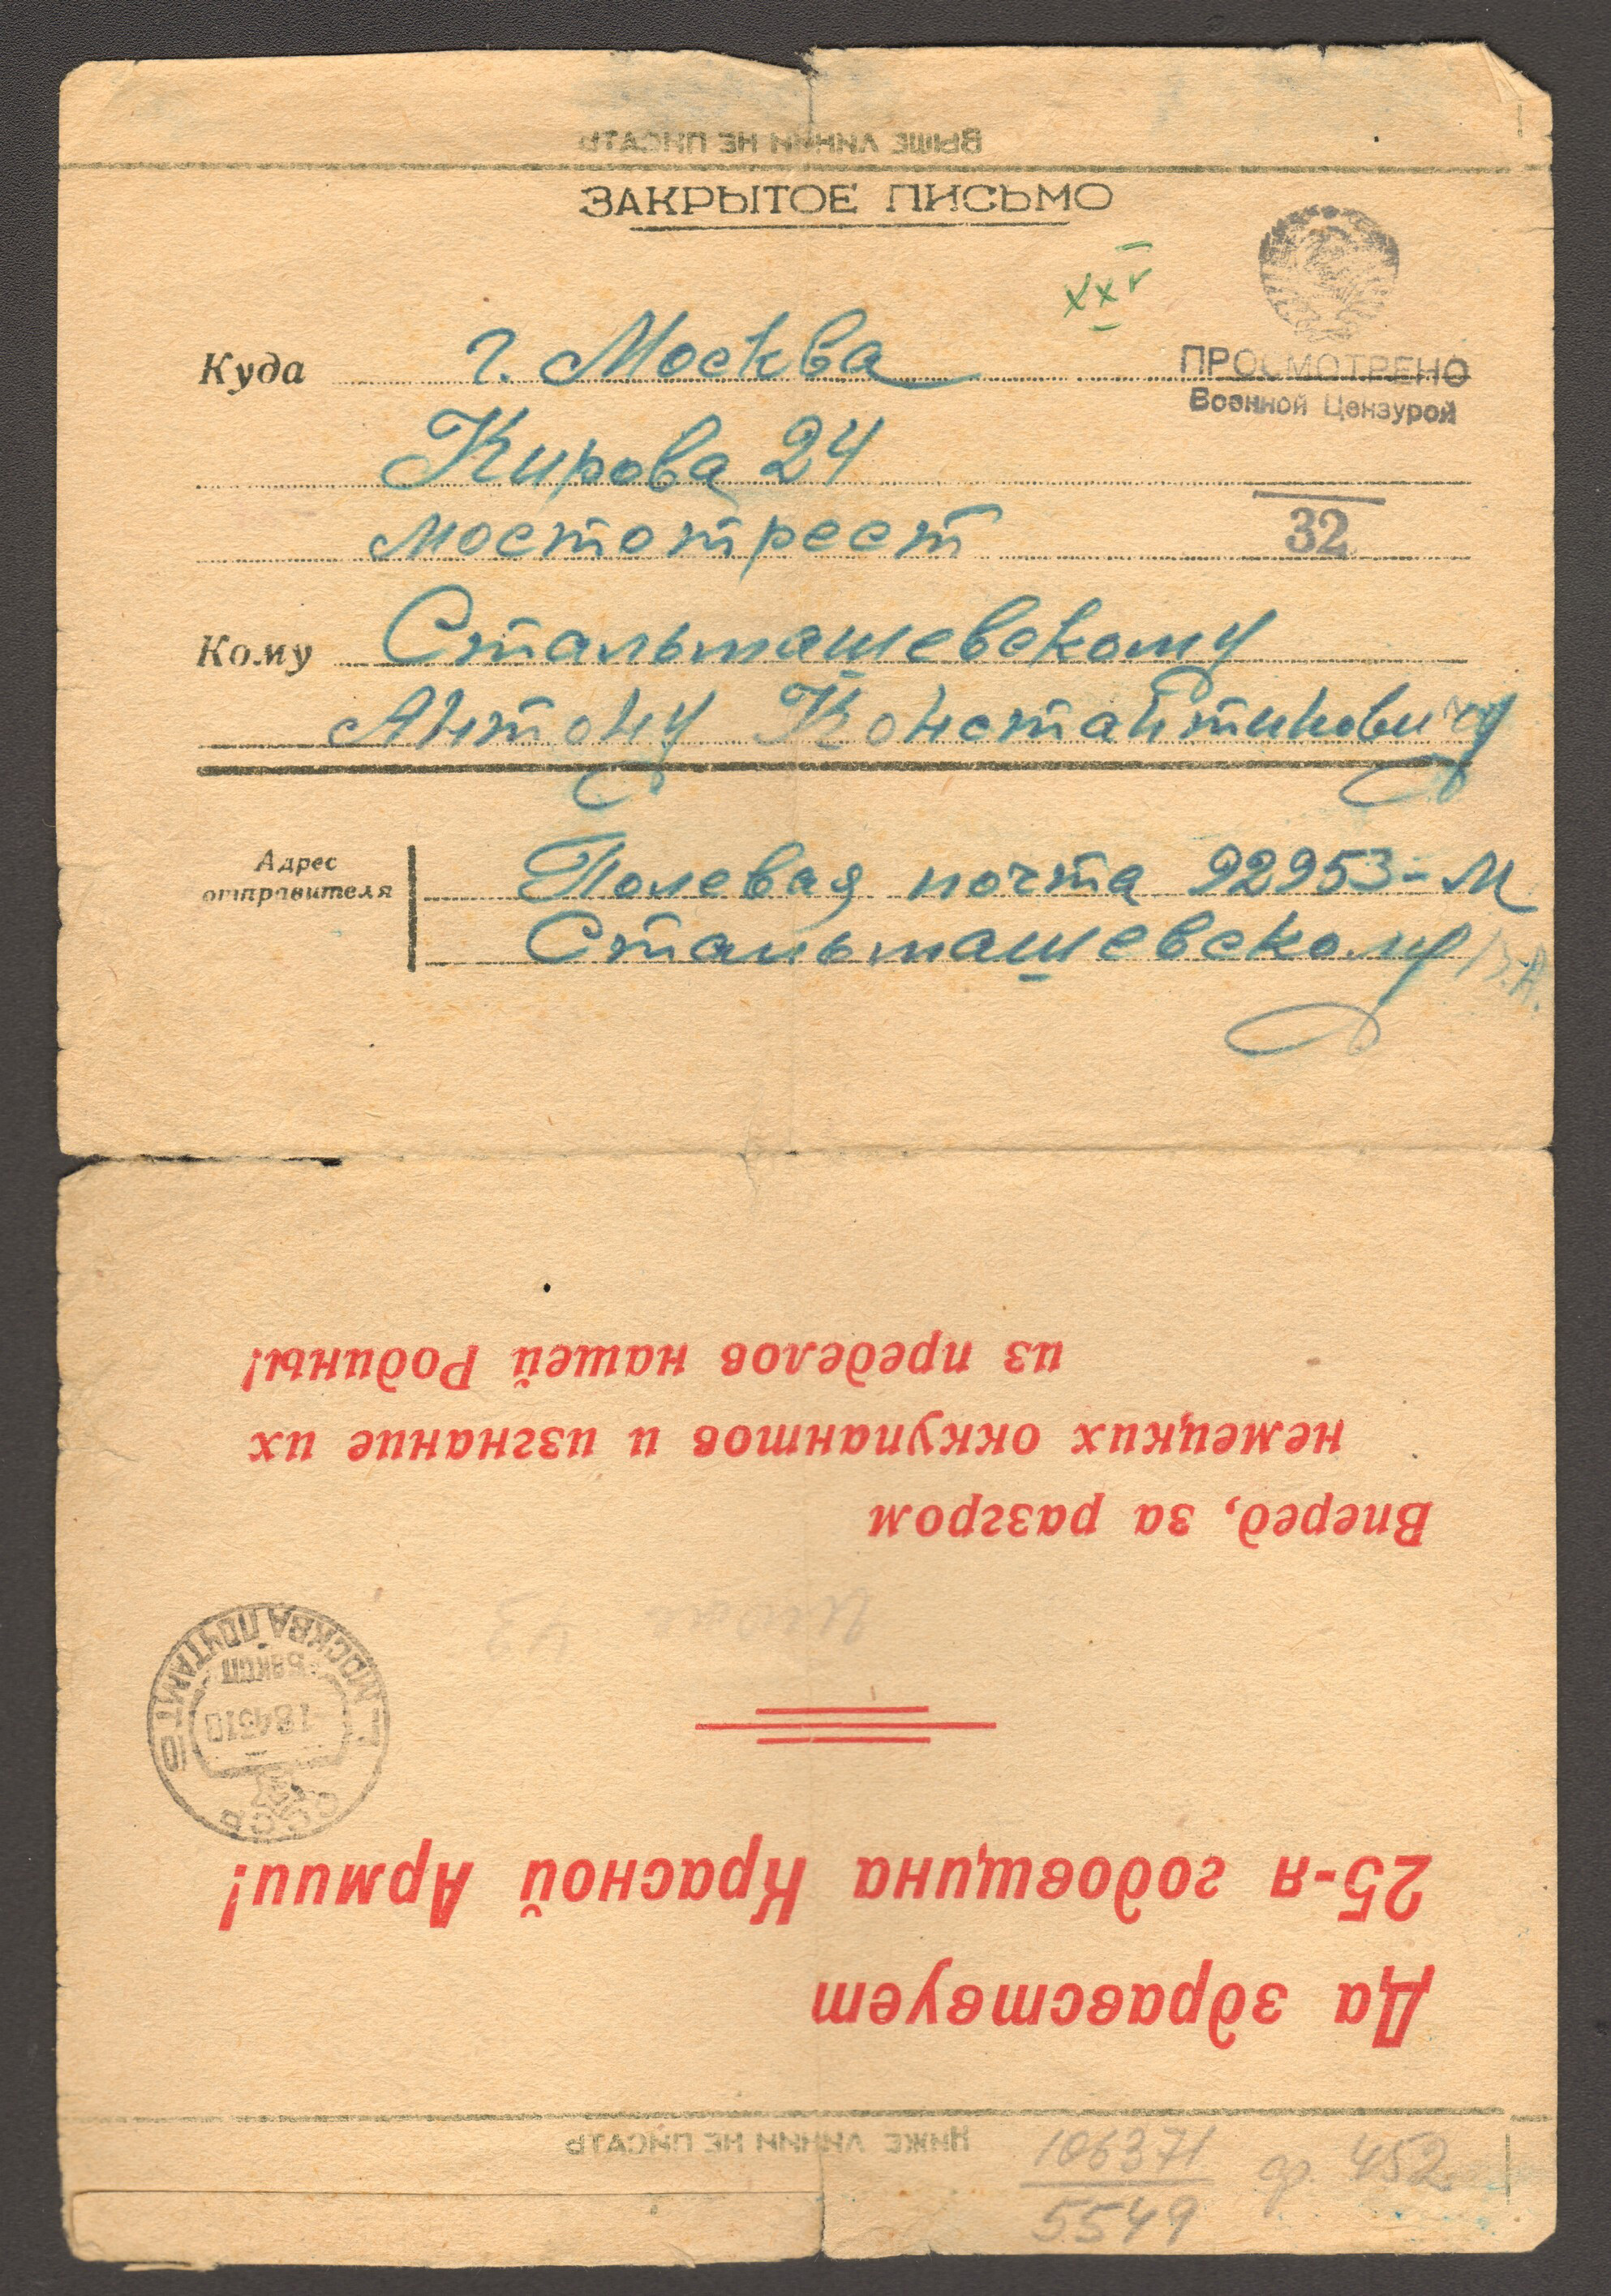 ВЫШЕ ЛИНИИ НЕ ПИСАТЬ
ЗАКРЫТОЕ ПИСЬМО
ХХV
Куда г. Москва
ПРОСМОТРЕНО
Военной Цензурой
Кирова 24
мостотрест
32
Кому Стальмашевскому
Антону Константиновичу
Адрес
отправителя
Полевая почта 92953-М
Стальмашевскому В.А.
из пределов нашей Родины!
немецких оккупантов и изгнание их
Вперед, за разгром
МОСКВА ПОЧТАМТ
СССР
25-я годовщина Красной Армии!
Да здравствует
НИЖЕ ЛИНИИ НЕ ПИСАТЬ
106371
5549
ф. 452